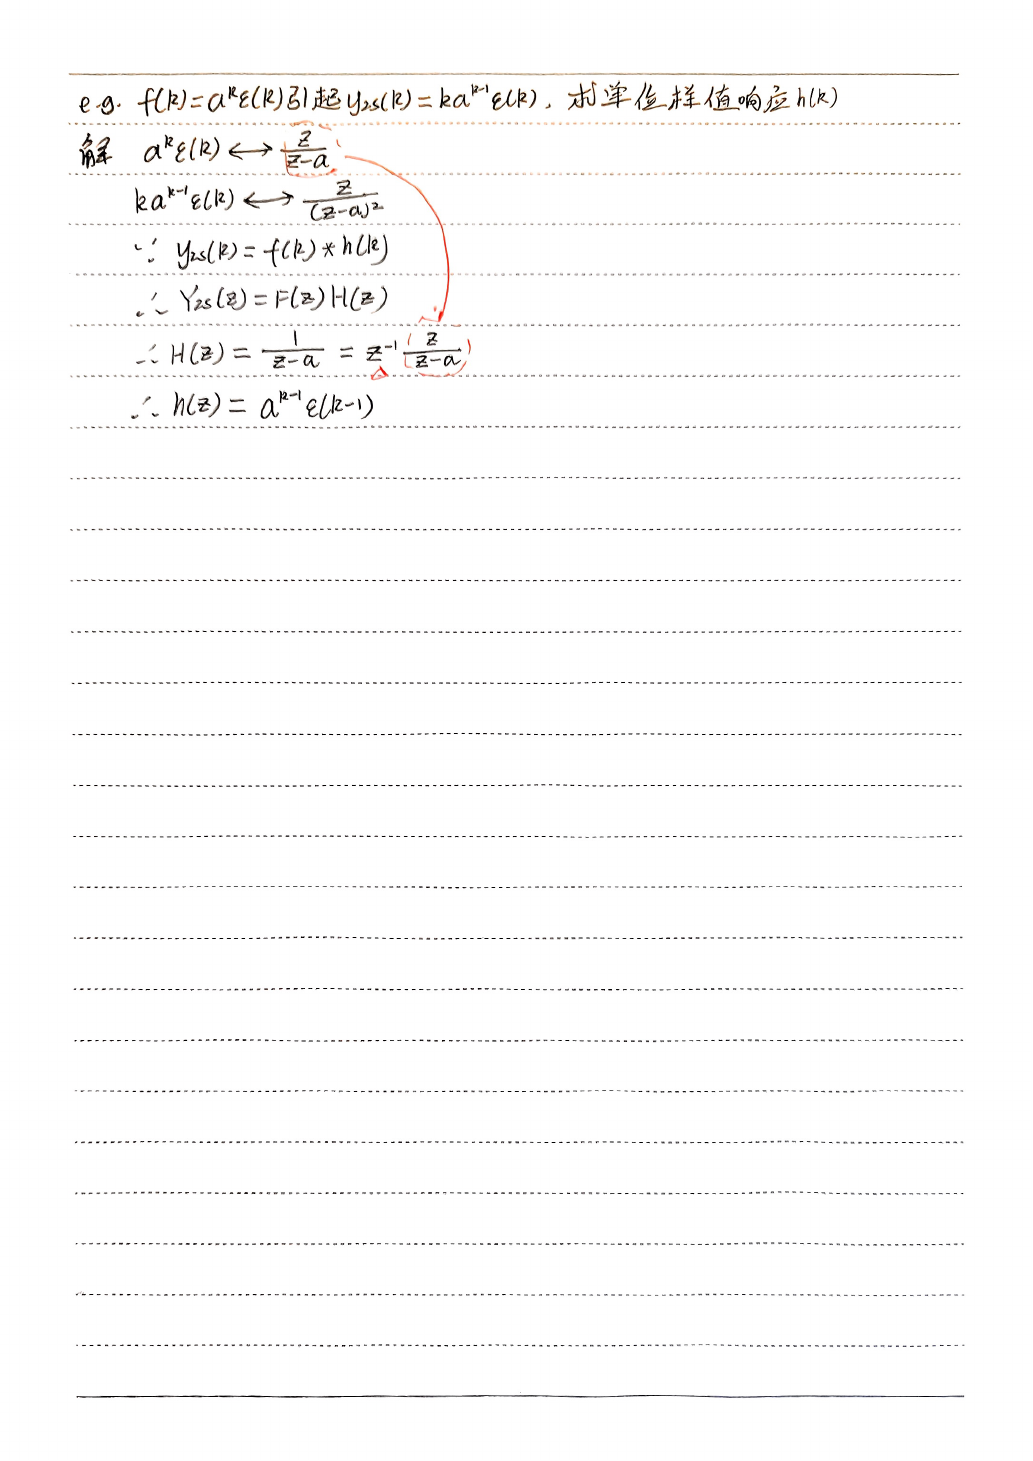 e.g. f(k)=a^kε(k)引起y_zs(k)=ka^{k-1}ε(k), 求单位样值响应h(k)
解 a^kε(k)⟷z/(z-a)
ka^{k-1}ε(k)⟷z/(z-a)^2
∵ y_zs(k)=f(k)*h(k)
∴ Y_zs(z)=F(z)H(z)
∴ H(z)=1/(z-a)=z^{-1} z/(z-a)
∴ h(z)=a^{k-1}ε(k-1)